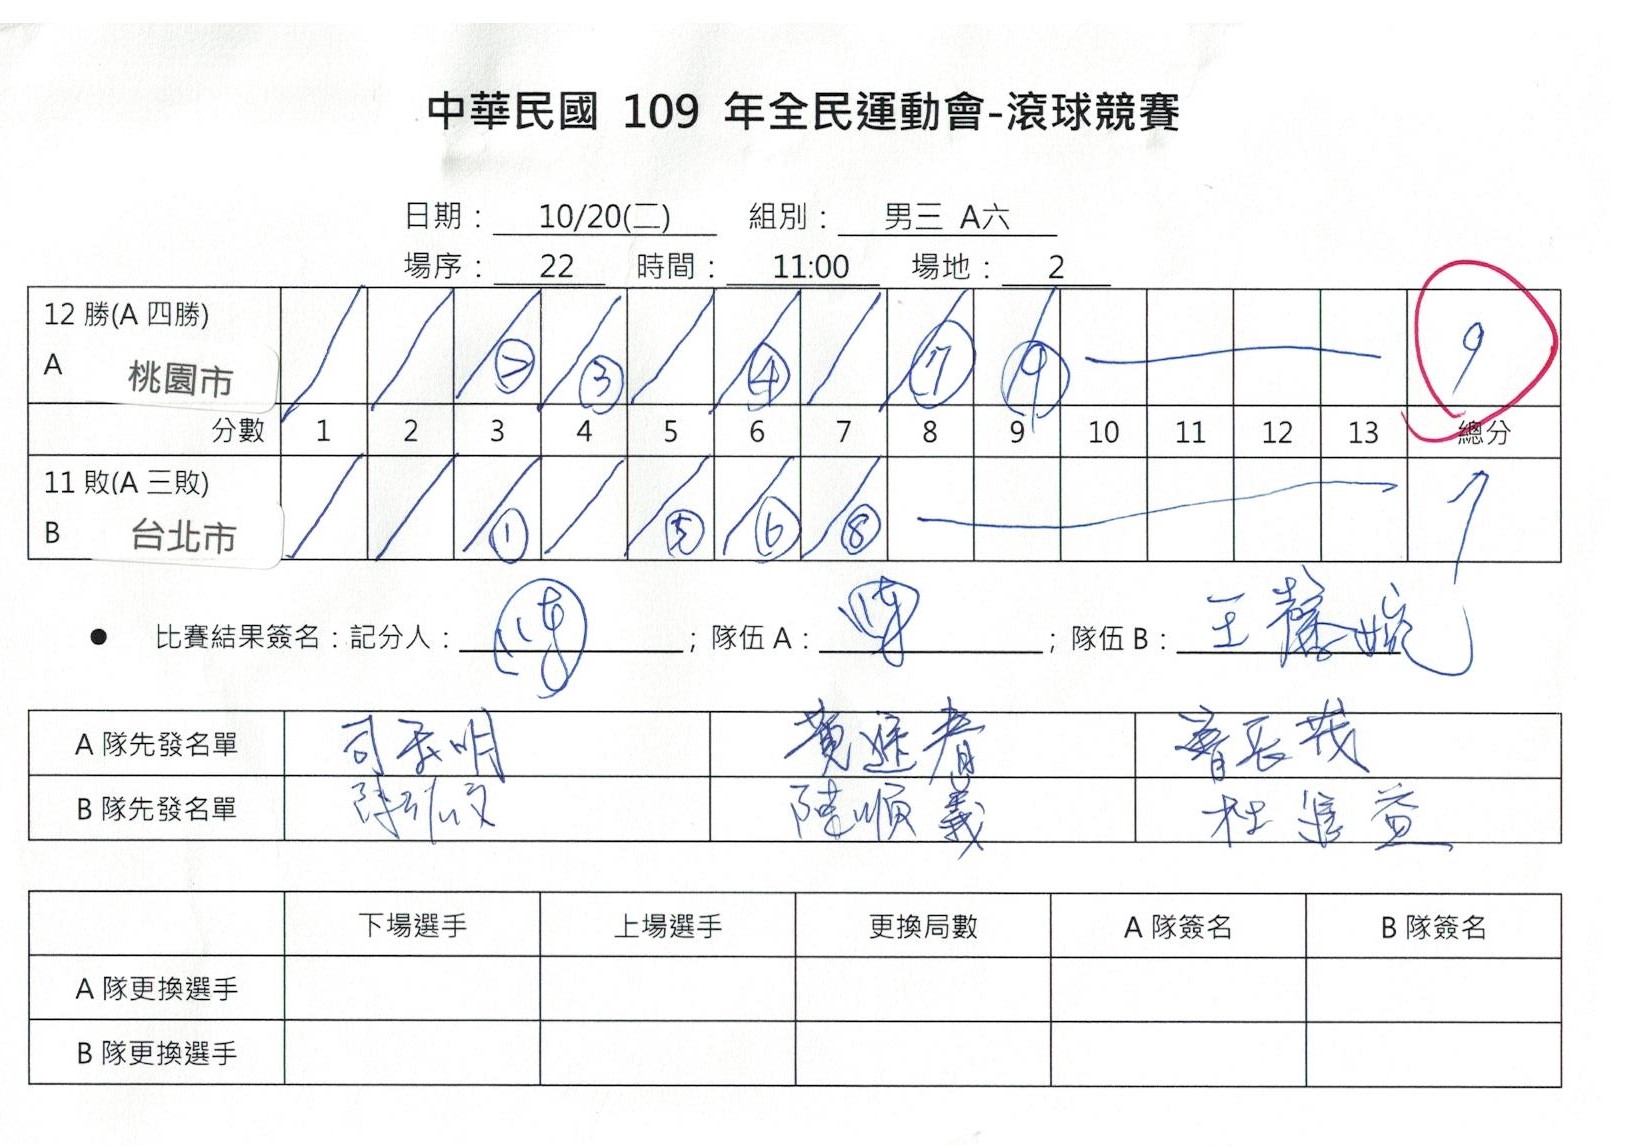 中華民國 109 年全民運動會-滾球競賽
日期： 10/20(二) 組別： 男三 A六
場序： 22 時間： 11:00 場地： 2
12 勝(A 四勝)
A 桃園市 ② ③ ④ ⑦ ⑨ 9
分數 1 2 3 4 5 6 7 8 9 10 11 12 13 總分
11 敗(A 三敗)
B 台北市 ① ⑤ ⑥ ⑧ 7
● 比賽結果簽名：記分人： ；隊伍 A： ；隊伍 B： 王馨婉
A 隊先發名單
B 隊先發名單 陳順義 杜進益
下場選手 上場選手 更換局數 A 隊簽名 B 隊簽名
A 隊更換選手
B 隊更換選手